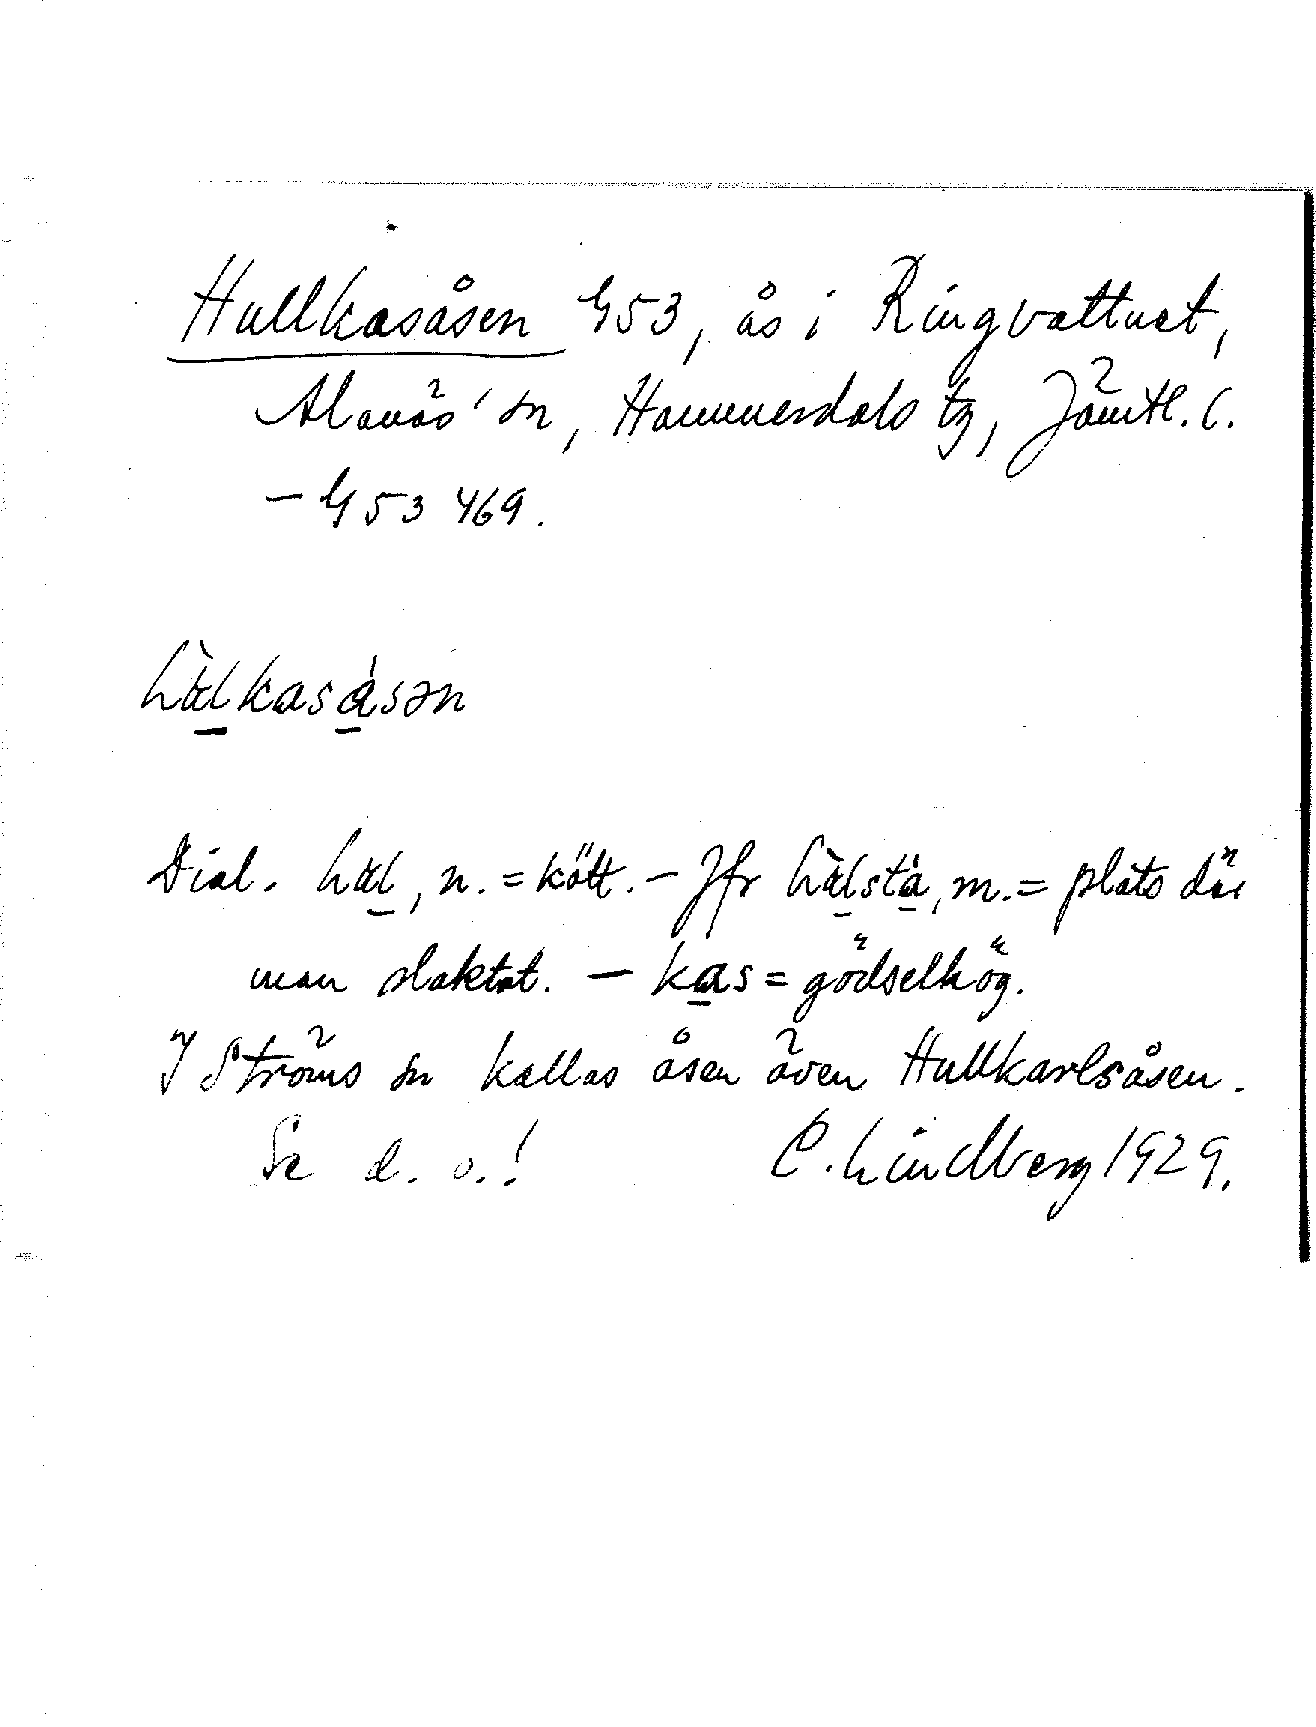 Hullkasåsen G53, ås i Ringvattnet,
Alanäs' sn, Hammerdals tg, Jämtl. l.
– G53 469.
hʉ̀lkasåsən
Dial. hʉl, n. = kött. – Jfr hʉ̀lstå, m. = plats där
man slaktat. – kas = gödselhög.
I Ströms sn kallas åsen även Hullkarlsåsen.
Se d. o.! C. Lindberg 1929.